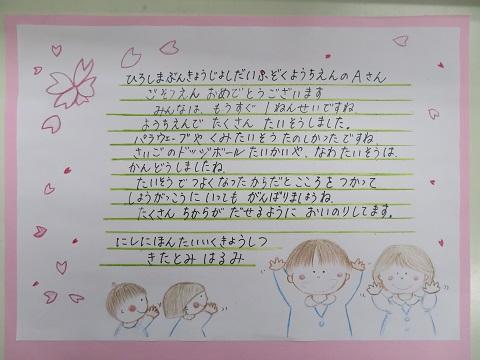 ひろしまぶんきょうじょしだいふぞくようちえんのAさん
ごそつえん おめでとうございます
みんなは、もうすぐ1ねんせいですね
ようちえんで たくさん たいそうしました。
パラウェーブや くみたいそう たのしかったですね
さいごのドッジボールたいかいや、なわたいそうは、
かんどうしましたね。
たいそうでつよくなったからだとこころをつかって
しょうがっこうにいっても がんばりましょうね、
たくさん ちからが だせるように おいのりしてます。
にしにほんたいいくきょうしつ
きたとみ はるみ